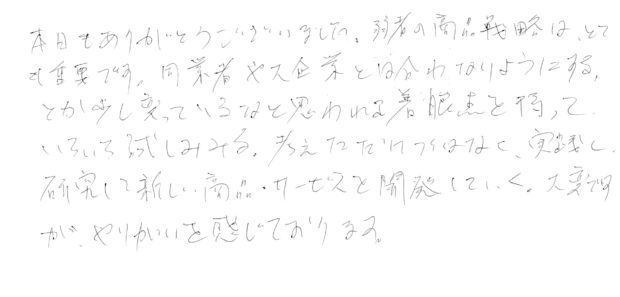 本日もありがとうございました。弱者の商品戦略は、とて
も重要です。同業者や大企業とは合わなりようにする、
とか少し変っているなと思われる着眼点を持って
いろいろ試しみる。考えただけではなく、実践し
研究して新しい商品・サービスを開発していく。大変です
が、やりがいを感じております。